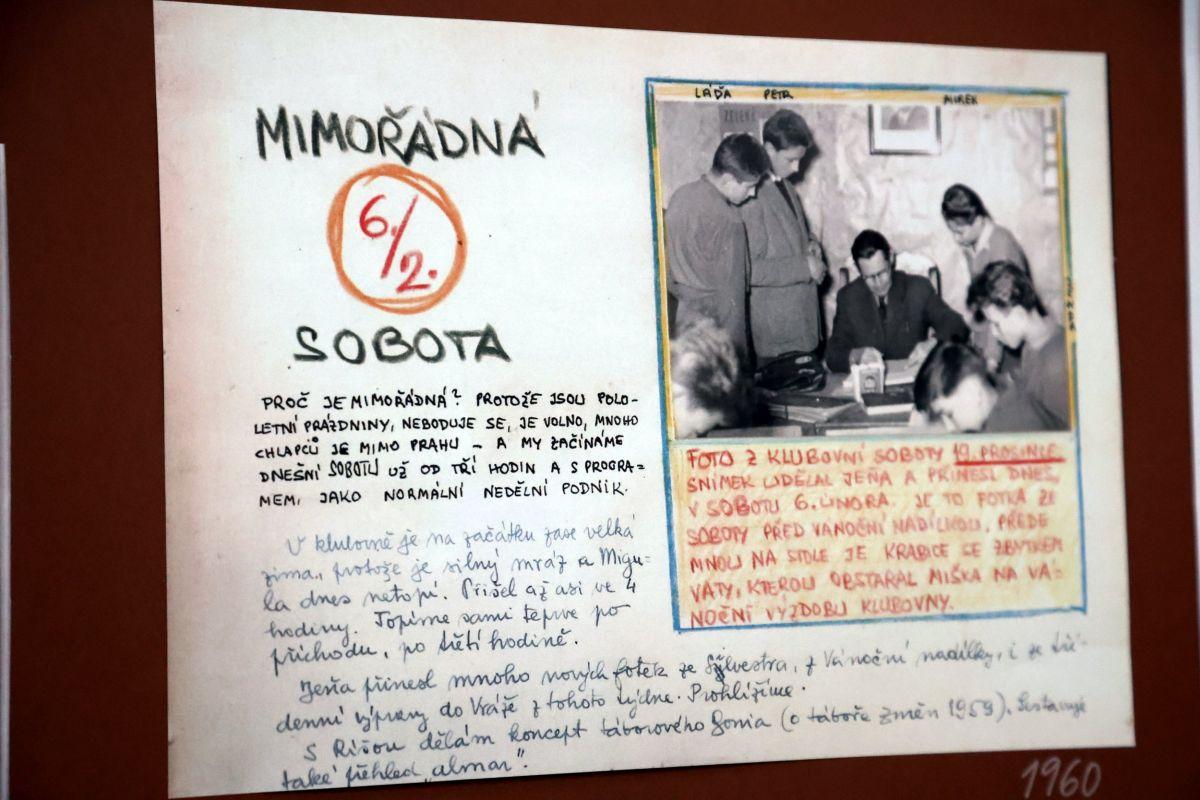 MIMOŘÁDNÁ
6./2.
SOBOTA
PROČ JE MIMOŘÁDNÁ? PROTOŽE JSOU POLO-
LETNÍ PRÁZDNINY, NEBODUJE SE, JE VOLNO, MNOHO
CHLAPCŮ JE MIMO PRAHU – A MY ZAČÍNÁME
DNEŠNÍ SOBOTU UŽ OD TŘÍ HODIN A S PROGRA-
MEM, JAKO NORMÁLNÍ NEDĚLNÍ PODNIK.
V klubovně je na začátku zase velká
zima, protože je silný mráz a Migu-
la dnes netopí. Přišel až asi ve 4
hodiny. Topíme sami teprve po
příchodu, po třetí hodině.
Jeňa přinesl mnoho nových fotek ze Silvestra, z Vánoční nadílky, i ze tří-
denní výpravy do Vráže z tohoto týdne. Prohlížíme.
S Ríšou dělám koncept táborového (o táboře Změn 1959). Sestavuje
také přehled „almar".
LÁĎA PETR MIREK
FOTO Z KLUBOVNÍ SOBOTY 19. PROSINCE.
SNÍMEK UDĚLAL JEŇA A PŘINESL DNES,
V SOBOTU 6. ÚNORA. JE TO FOTKA ZE
SOBOTY PŘED VÁNOČNÍ NADÍLKOU. PŘEDE
MNOU NA STOLE JE KRABICE SE ZBYTKEM
VATY, KTEROU OBSTARAL MIŠKA NA VÁ-
NOČNÍ VÝZDOBU KLUBOVNY.
1960